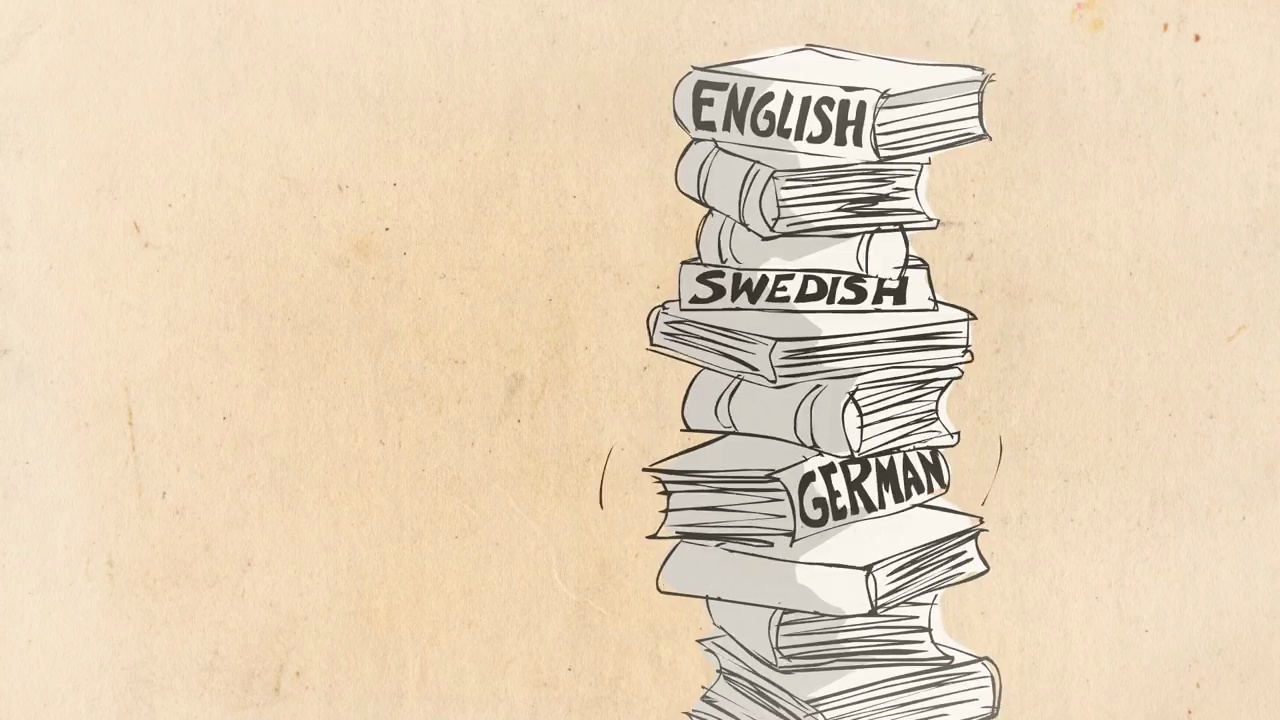 ENGLISH
SWEDISH
GERMAN